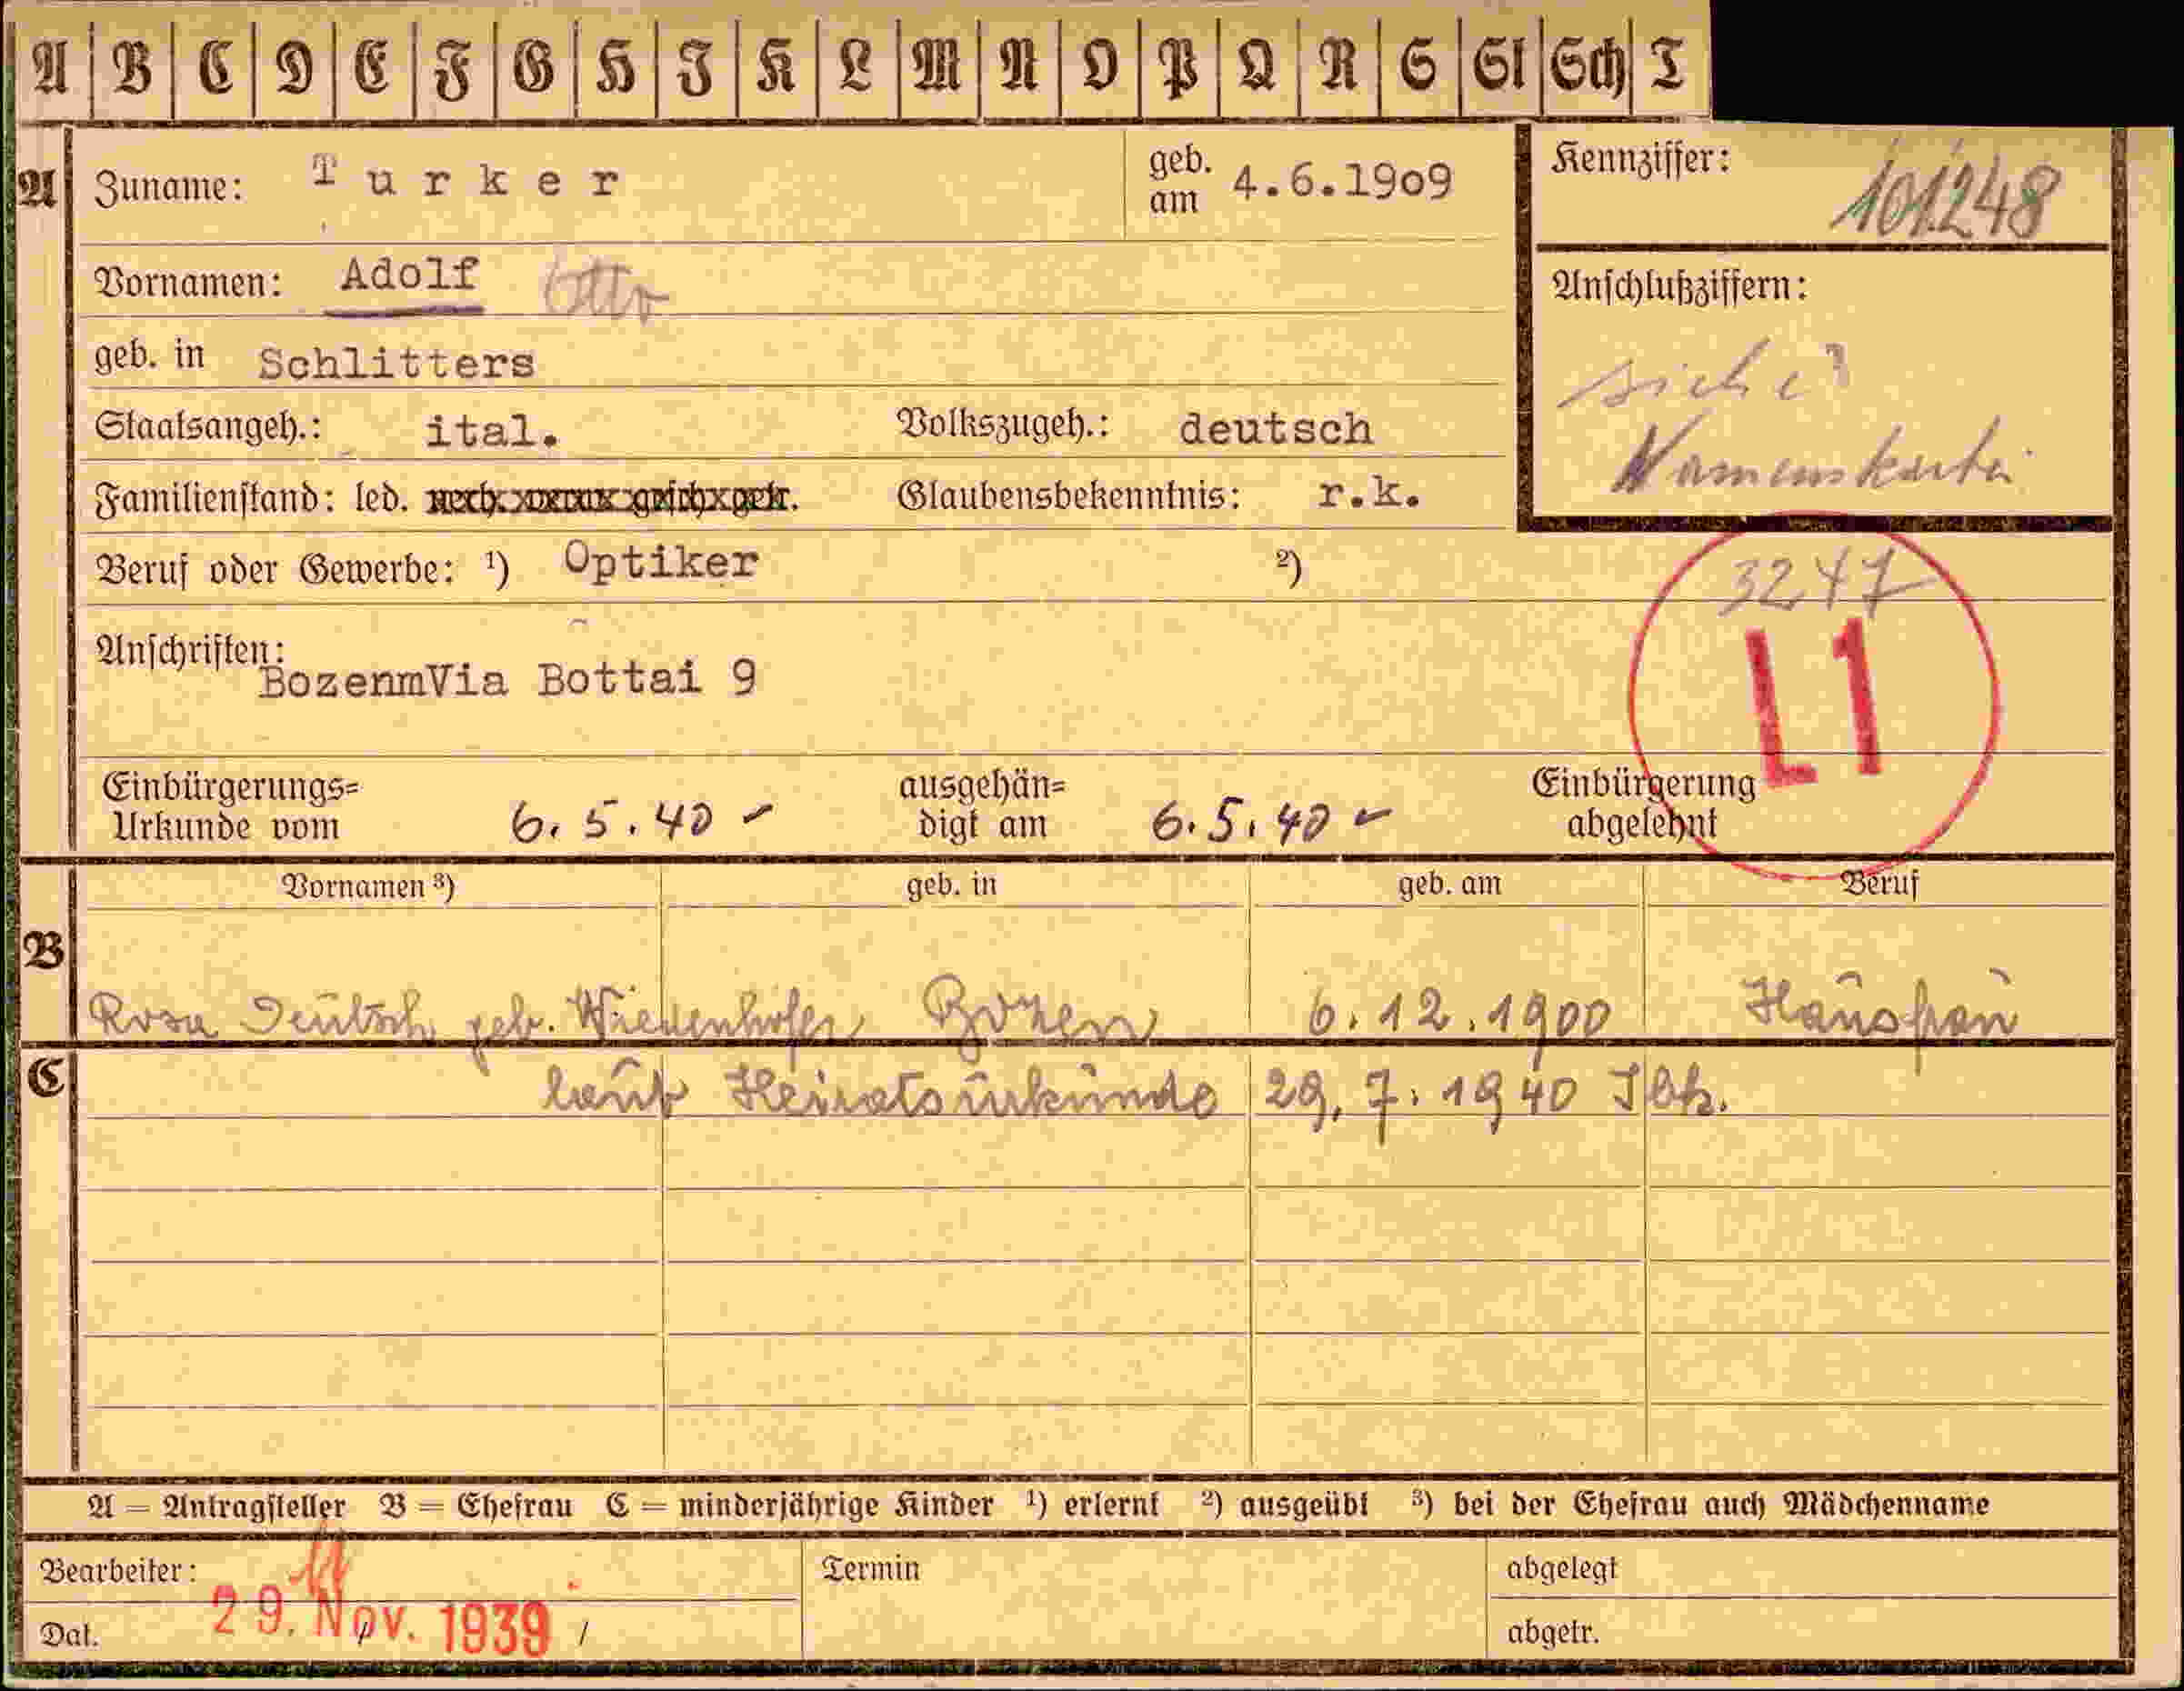 A B C D E F G H I K L M N O P Q R S St Sch T
A Zuname: Turker geb. am 4.6.1909 Kennziffer: 101248
Vornamen: Adolf Otto Anschlußziffern:
geb. in Schlitters siehe
Staatsangeh.: ital. Volkszugeh.: deutsch Namenskartei
Familienstand: led. verh. verw. gesch. getr. Glaubensbekenntnis: r.k.
Beruf oder Gewerbe: ¹) Optiker ²) 3247
Anschriften:
BozenmVia Bottai 9 L1
Einbürgerungs=
Urkunde vom 6.5.40 ausgehän=
digt am 6.5.40 Einbürgerung
abgelehnt
Vornamen ³) geb. in geb. am Beruf
B Rosa Deutsch geb. Wiedenhofer Bozen 6.12.1900 Hausfrau
C laut Heiratsurkunde 29.7.1940 Ibk.
A = Antragsteller B = Ehefrau C = minderjährige Kinder ¹) erlernt ²) ausgeübt ³) bei der Ehefrau auch Mädchenname
Bearbeiter: Termin abgelegt
Dat. 29. Nov. 1939 abgetr.